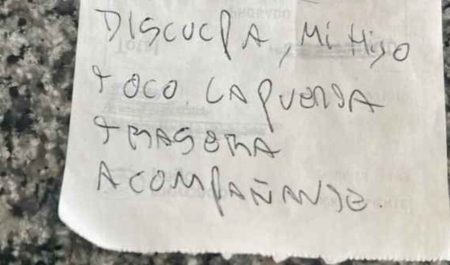 DISCUCPA, Mi Hijo
TOCO LA PUERTA
TRASERA
ACOMPAÑANTE.